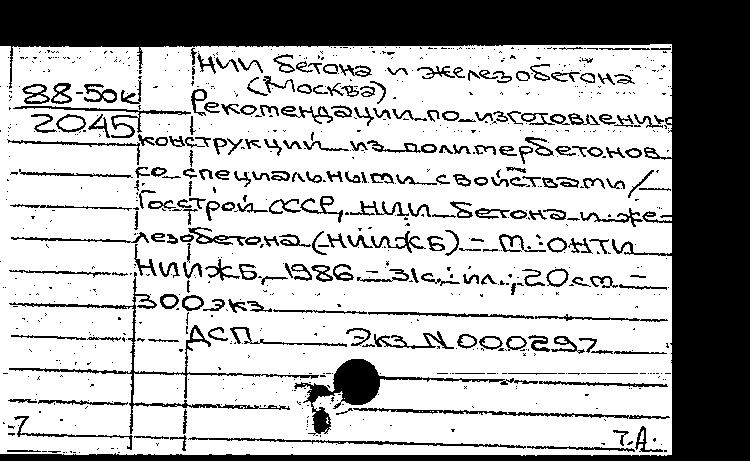 НИИ бетона и железобетона
(Москва)
88-5ок
2045
Рекомендации по изготовлению
конструкций из полимербетонов
со специальными свойствами /
Госстрой СССР, НИИ бетона и же-
лезобетона (НИИЖБ) - М.: ОНТИ
НИИЖБ, 1986. - 31с.: ил.; 20см. -
300экз.
ДСП. Экз N 000297
7
Т.А.